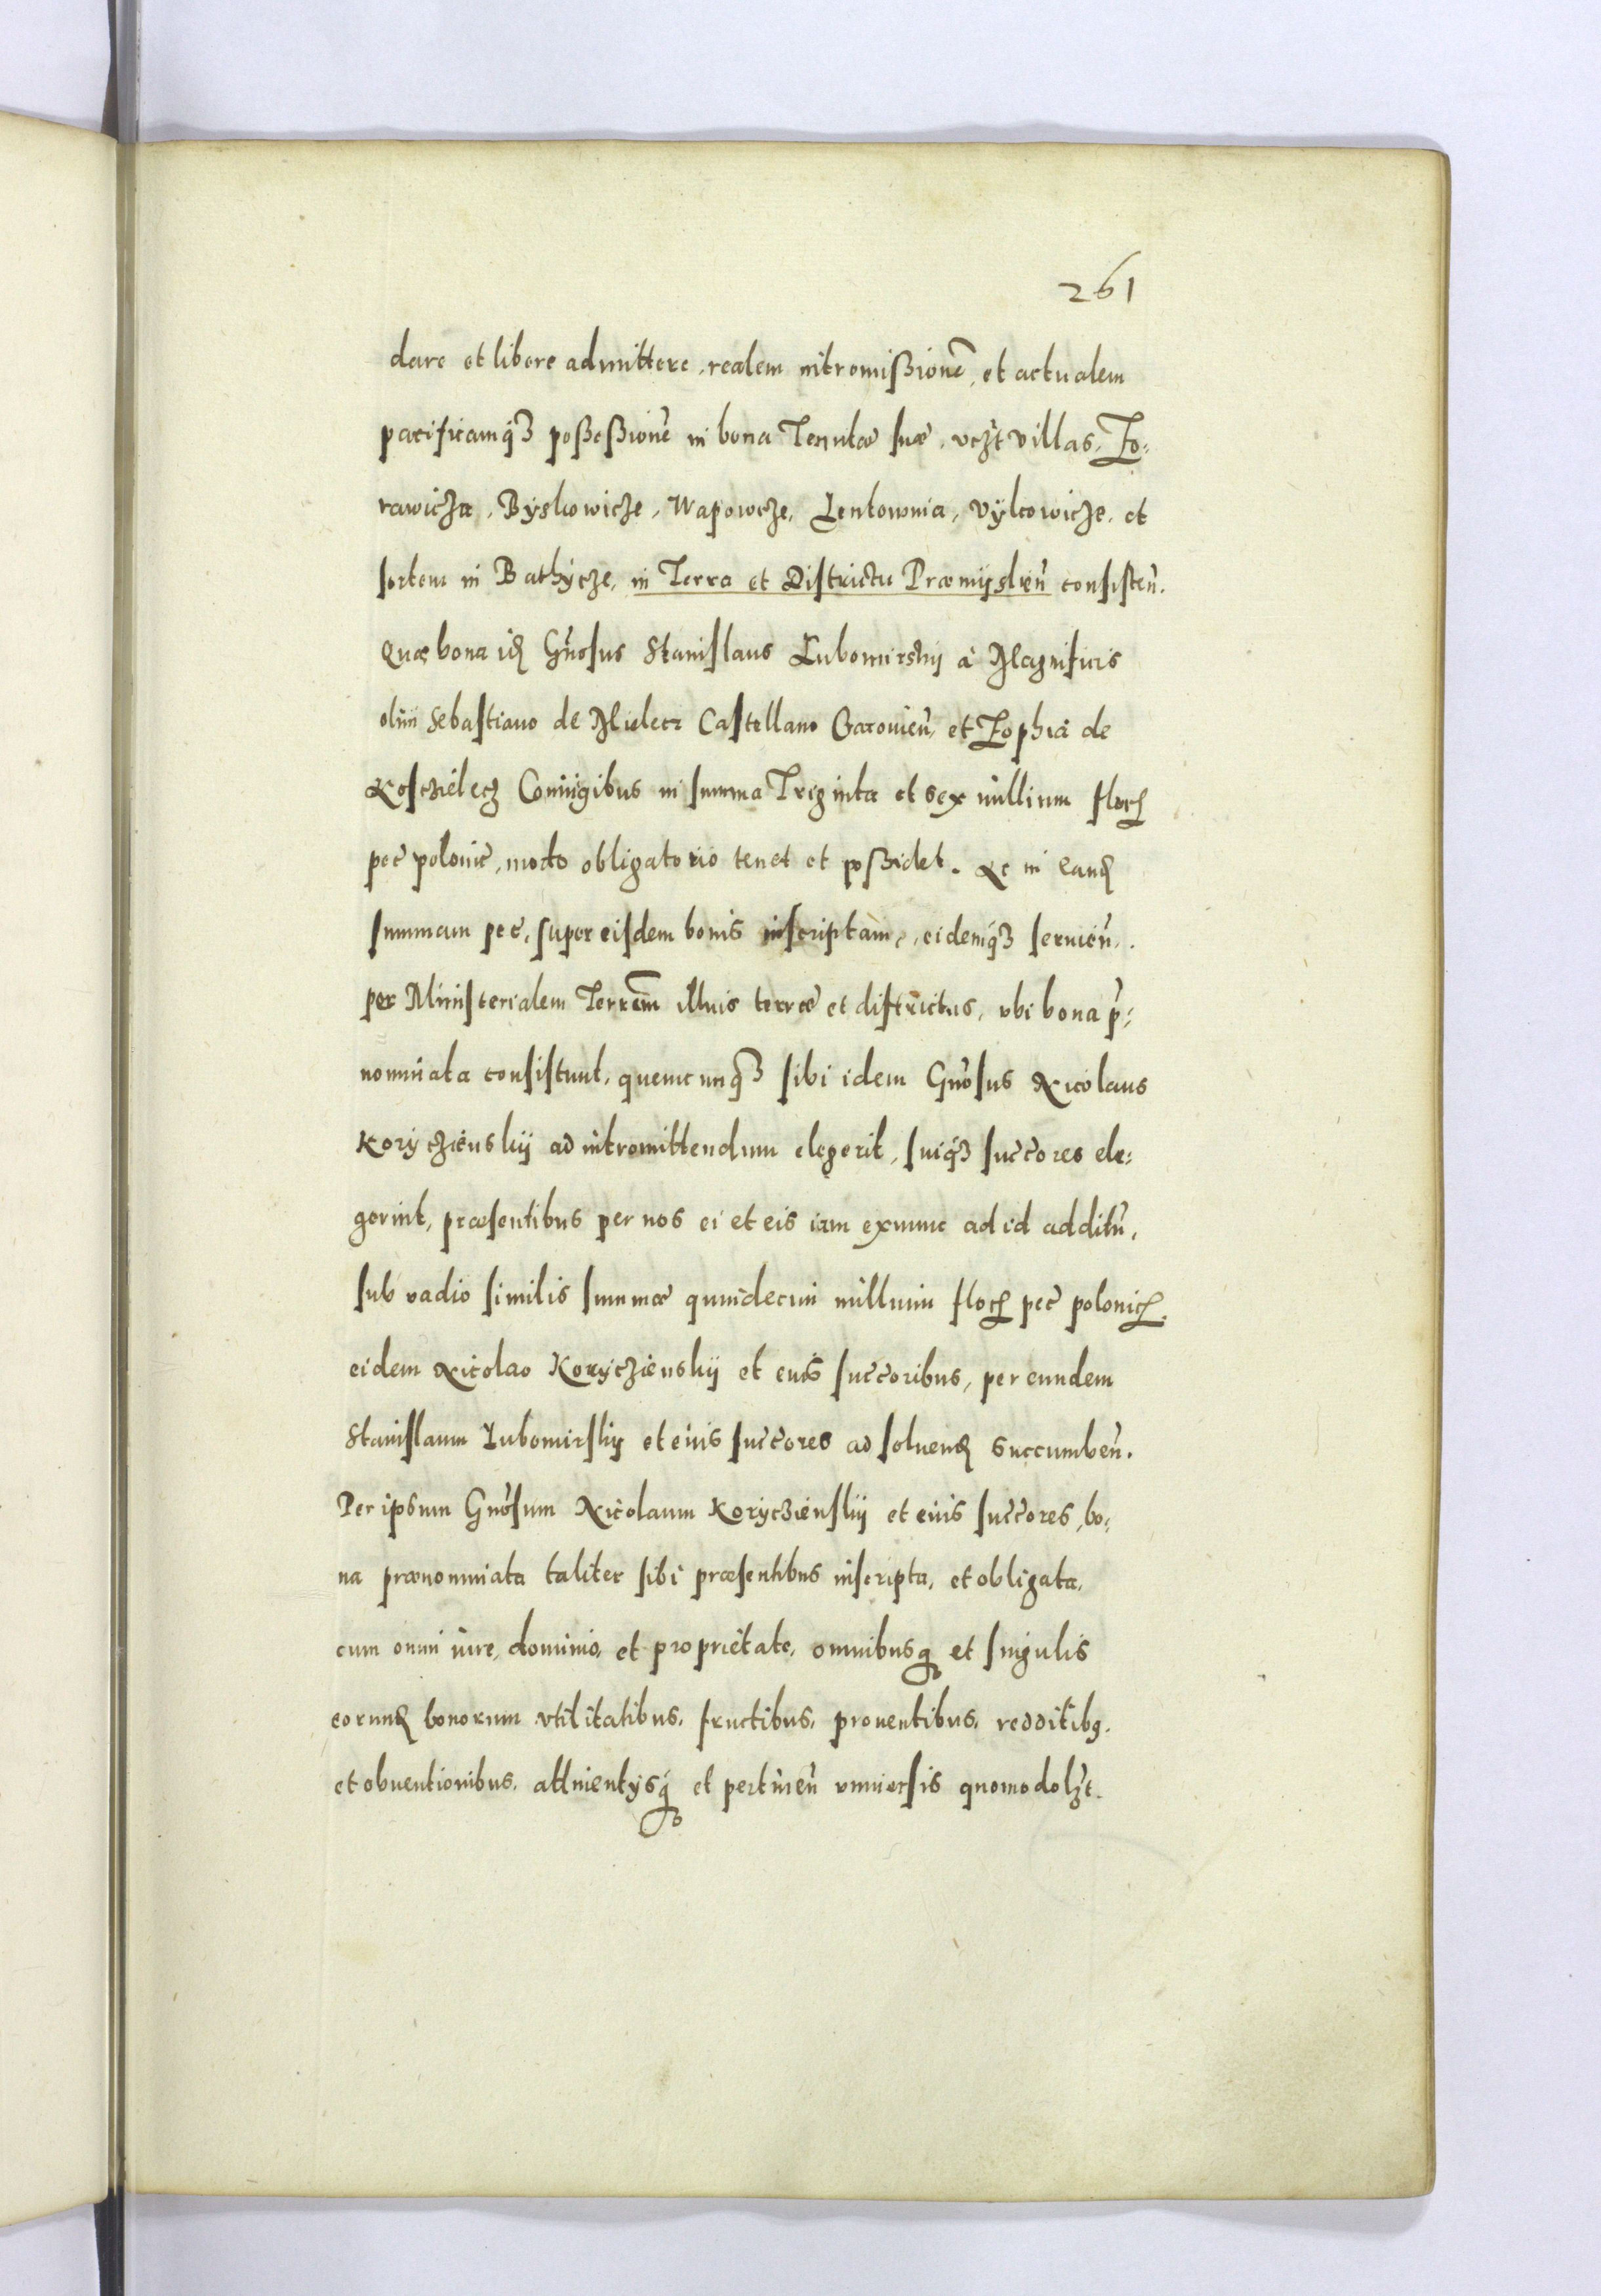 261
dare et libere admittere, realem intromißionē, et actualem
pacificamq́ꝫ poßeßionē in bona Tenutæ suæ, vcꝫt villas, Zo-
rawicza, Byskowicze, Wapowcze, Lentownia, Vylcowicze, et
sortem in Bathÿcze, in Terra et Districtu Præmÿslień consisteñ.
Quæ bona idꝫ Gñosus Stanislaus Lubomirskÿ à Magnificis
olim Sebastiano de Mielecz Castellano Cracovień, et Zophia de
Koscziélecz Coniugibus in summa Triginta et sex millium florꝫ
pec̃ polonic̃, modo obligatorio tenet et poßidet. Ac in eandꝫ
summam pec̃, super eisdem bonis inscriptam, eidemq́ꝫ servień.
per Ministerialem Terrem̃ illius terræ et districtus, vbi bona p̃-
nominata consistunt, quemcunqꝫ sibi idem Gñosus Nicolaus
Korÿcziẽnskÿ ad intromittendum elegerit, suiq́ꝫ succ̃ores ele-
gerint, præsentibus per nos ei et eis iam exnunc ad id additũ,
sub vadio similis summæ quindecim millium florꝫ pec̃ polonicꝫ.
eidem Nicolao Korycziẽnskÿ et eius succ̃oribus, per eundem
Stanislaum Lubomirskÿ et eius succ̃ores ad soluendꝫ succumbeñ.
Per ipsum Gñosum Nicolaum Korycziẽnskÿ et eius succ̃ores, bo-
na prænominata taliter sibi præsentibus inscripta, et obligata,
cum omni iure, dominio, et proprietate, omnibusqꝫ et singulis
eorundꝫ bonorum vtilitatibus, fructibus, prouentibus, redditibꝰ.
et obuentionibus, attinentÿsq́ꝫ et pertineñ vniuersis quomodolꝫt.